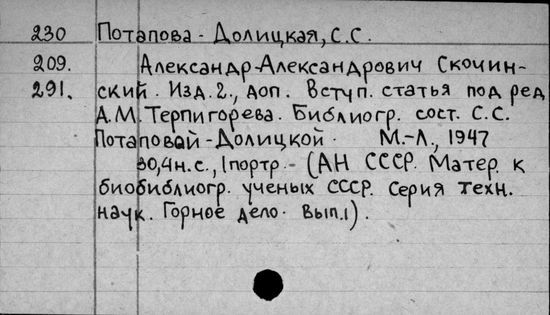 230 Потапова-Долицкая, С.С.
209. Александр Александрович Скочин-
291. ский. Изд. 2., доп. Вступ. статья под ред
А.М. Терпигорева. Библиогр. сост. С.С.
Потаповой-Долицкой. М.-Л., 1947
30,4н.с., 1портр.- (АН СССР. Матер. к
биобиблиогр. ученых СССР. Серия техн.
наук. Горное дело. Вып.1).